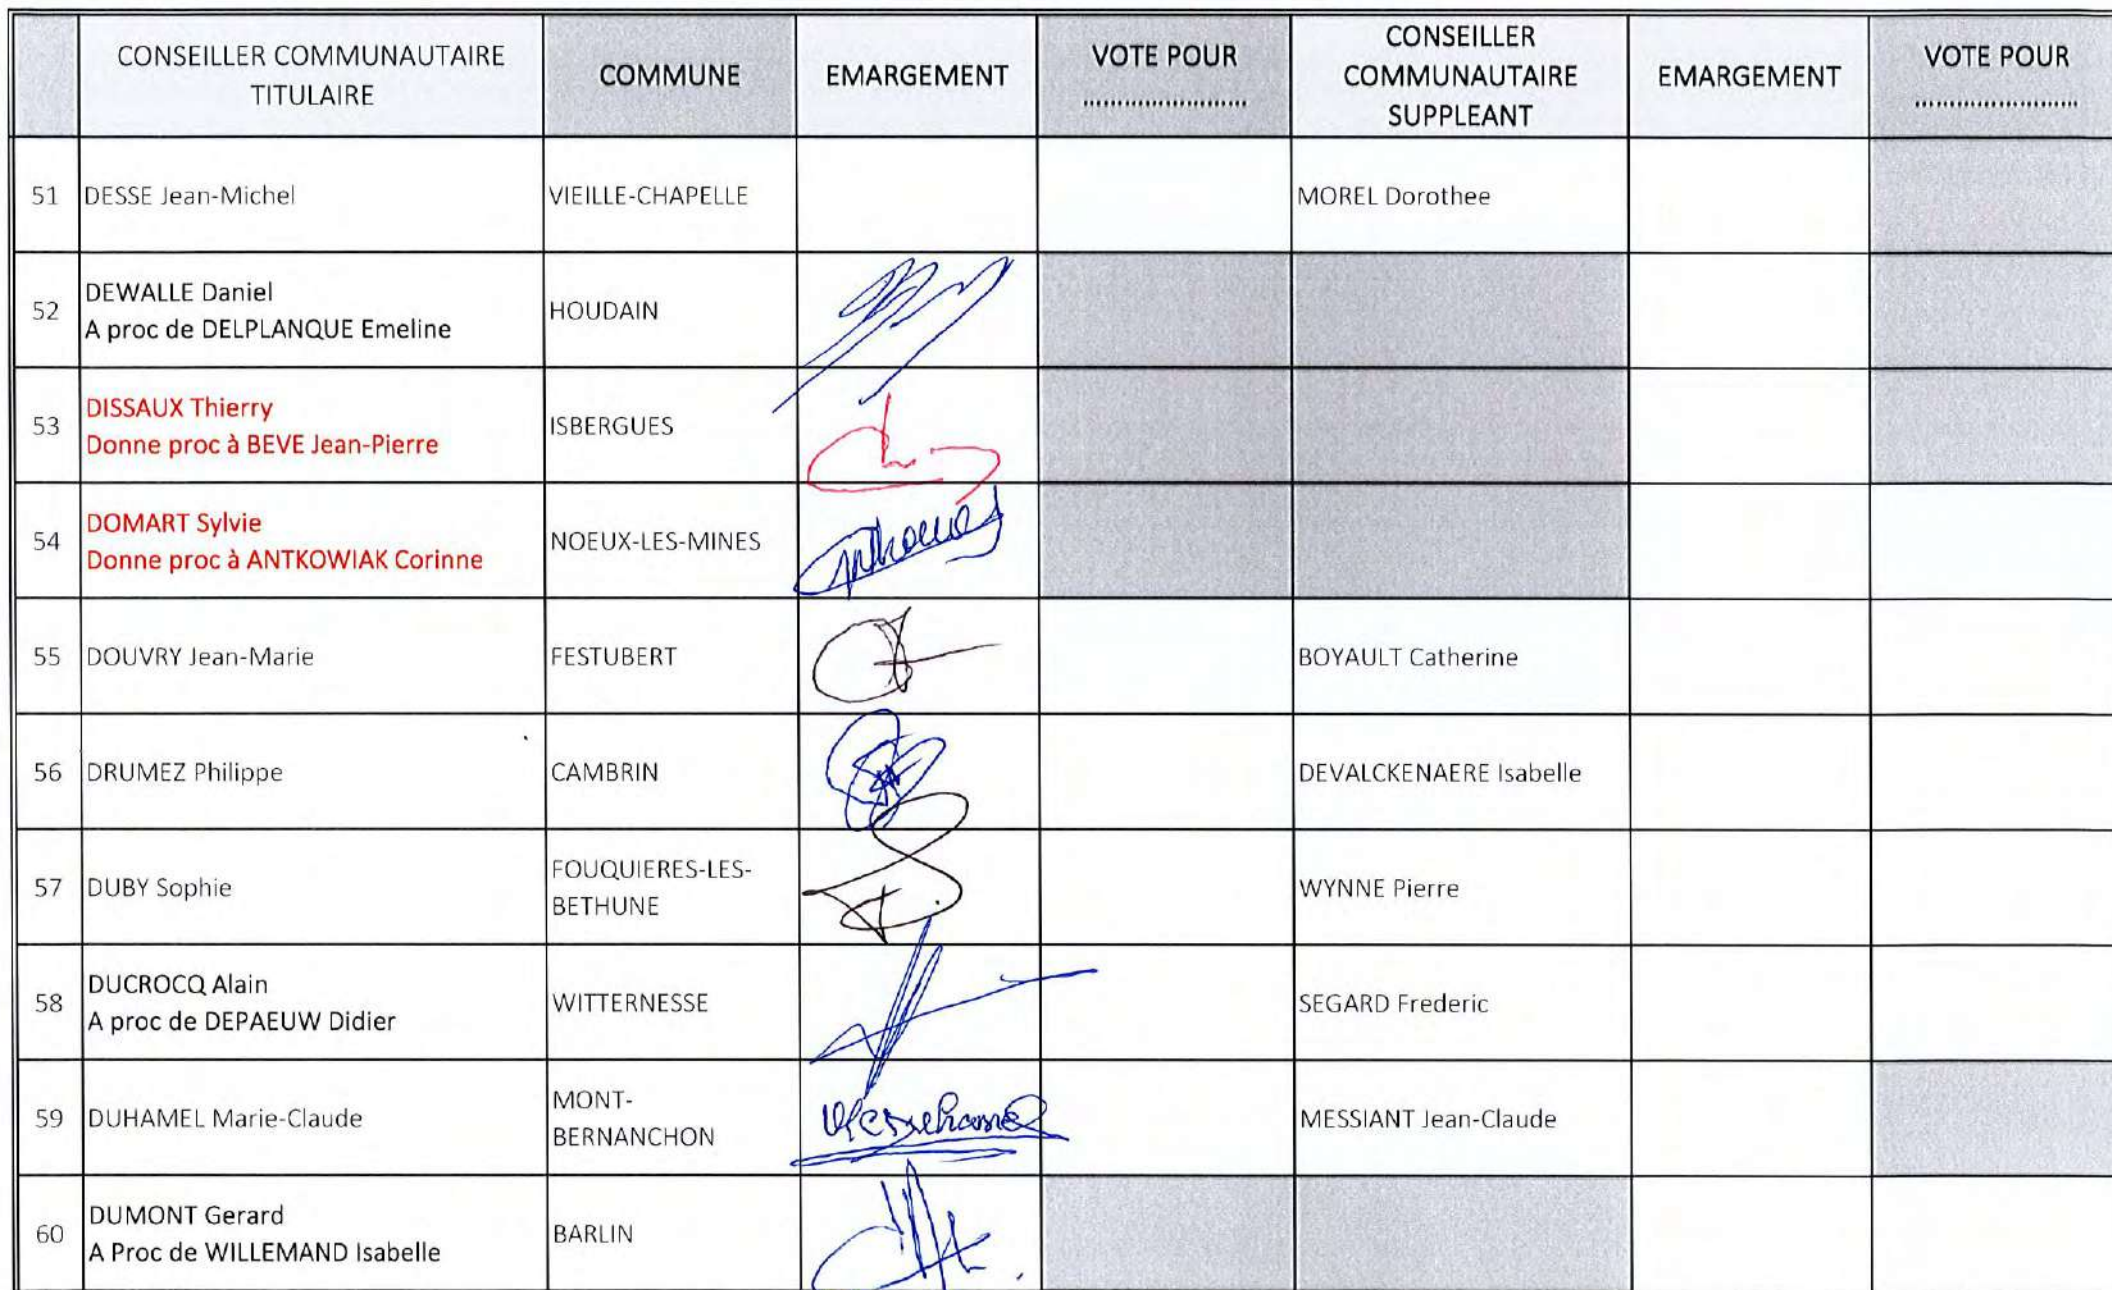 CONSEILLER COMMUNAUTAIRE
TITULAIRE
COMMUNE
EMARGEMENT
VOTE POUR
........................
CONSEILLER
COMMUNAUTAIRE
SUPPLEANT
EMARGEMENT
VOTE POUR
........................
51 DESSE Jean-Michel VIEILLE-CHAPELLE MOREL Dorothee
52 DEWALLE Daniel
A proc de DELPLANQUE Emeline
HOUDAIN
53 DISSAUX Thierry
Donne proc à BEVE Jean-Pierre
ISBERGUES
54 DOMART Sylvie
Donne proc à ANTKOWIAK Corinne
NOEUX-LES-MINES
55 DOUVRY Jean-Marie FESTUBERT BOYAULT Catherine
56 DRUMEZ Philippe CAMBRIN DEVALCKENAERE Isabelle
57 DUBY Sophie
FOUQUIERES-LES-
BETHUNE
WYNNE Pierre
58 DUCROCQ Alain
A proc de DEPAEUW Didier
WITTERNESSE
SEGARD Frederic
59 DUHAMEL Marie-Claude
MONT-
BERNANCHON
MESSIANT Jean-Claude
60 DUMONT Gerard
A Proc de WILLEMAND Isabelle
BARLIN